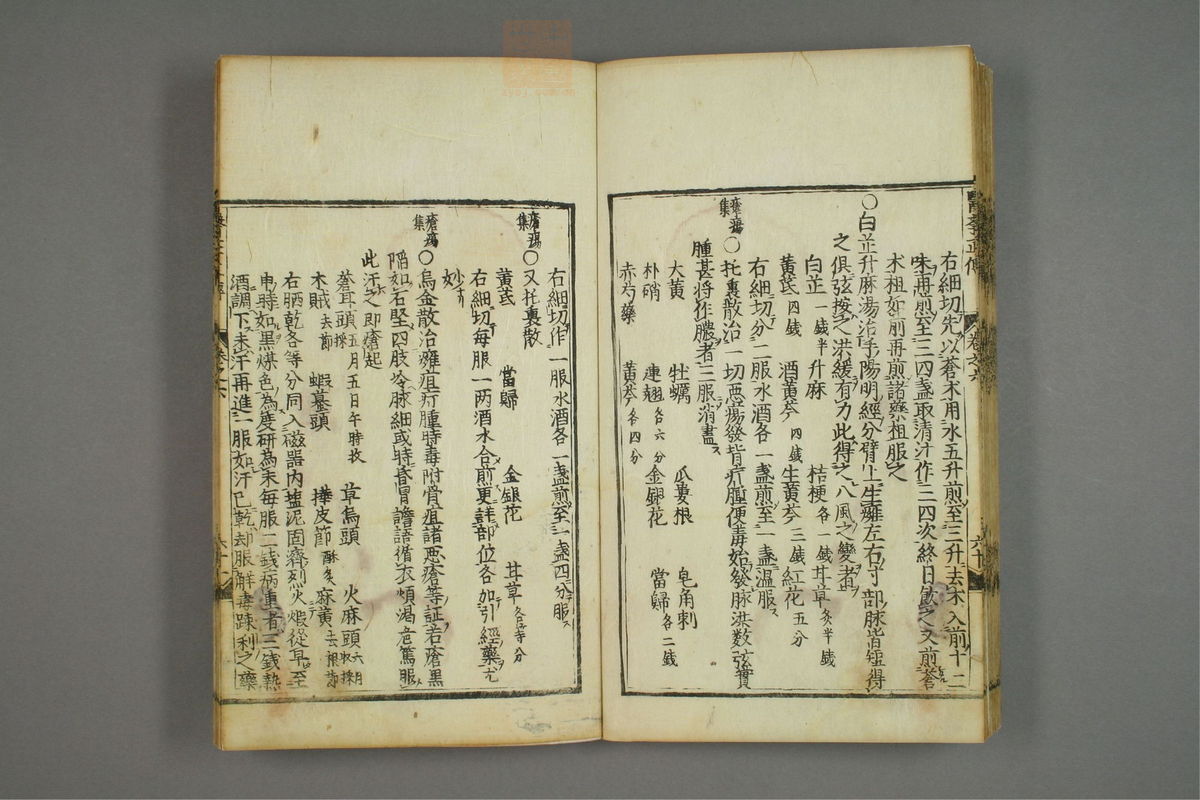 右細切先以蒼朮用水五升煎至三升去朮入前十二
味再煎至三四盞取清汁作三四次終日飲之又煎蒼
朮柤如前再煎諸藥柤服之
〇白芷升麻湯治手陽明經分臂上生癰左右寸部脉皆短得
之俱弦按之洪緩有力此得之八風之變者
白芷一錢半 升麻 桔梗各一錢 甘草炙半錢
黄芪四錢 酒黄芩四錢 生黄芩三錢 紅花五分
右細切分二服水酒各一盞煎至一盞温服
瘡瘍集
〇托裏散治一切悪瘍發背疔腫便毒始發脉洪数弦實
腫甚將作膿者三服消盡
大黄 牡蠣 瓜蔞根 皂角刺
朴硝 連翹各六分 金銀花 當歸各二錢
赤芍藥 黄芩各四分
右細切作一服水酒各一盞煎至一盞四分服
瘡瘍集
〇又托裏散
黄芪 當歸 金銀花 甘草各等分
右細切每服一两酒水合煎更詳部位各加引經藥尤
妙
瘡瘍集
〇烏金散治癰疽疔腫時毒附骨疽諸悪瘡等証若瘡黒
陷如石堅四肢冷脉細或時昏冒譫語循衣煩渇危篤服
此汗之即瘡起
蒼耳頭五月五日午時採 草烏頭 火麻頭
木賊去節 蝦蟇頭 樺皮節酥炙 麻黄去根節
右晒乾各等分同入磁器内塩泥固濟烈火煅從早至
申時如黒煤色為度研為末每服二錢病重者三錢熱
酒調下未汗再進一服如汗已乾却服解毒踈利之藥